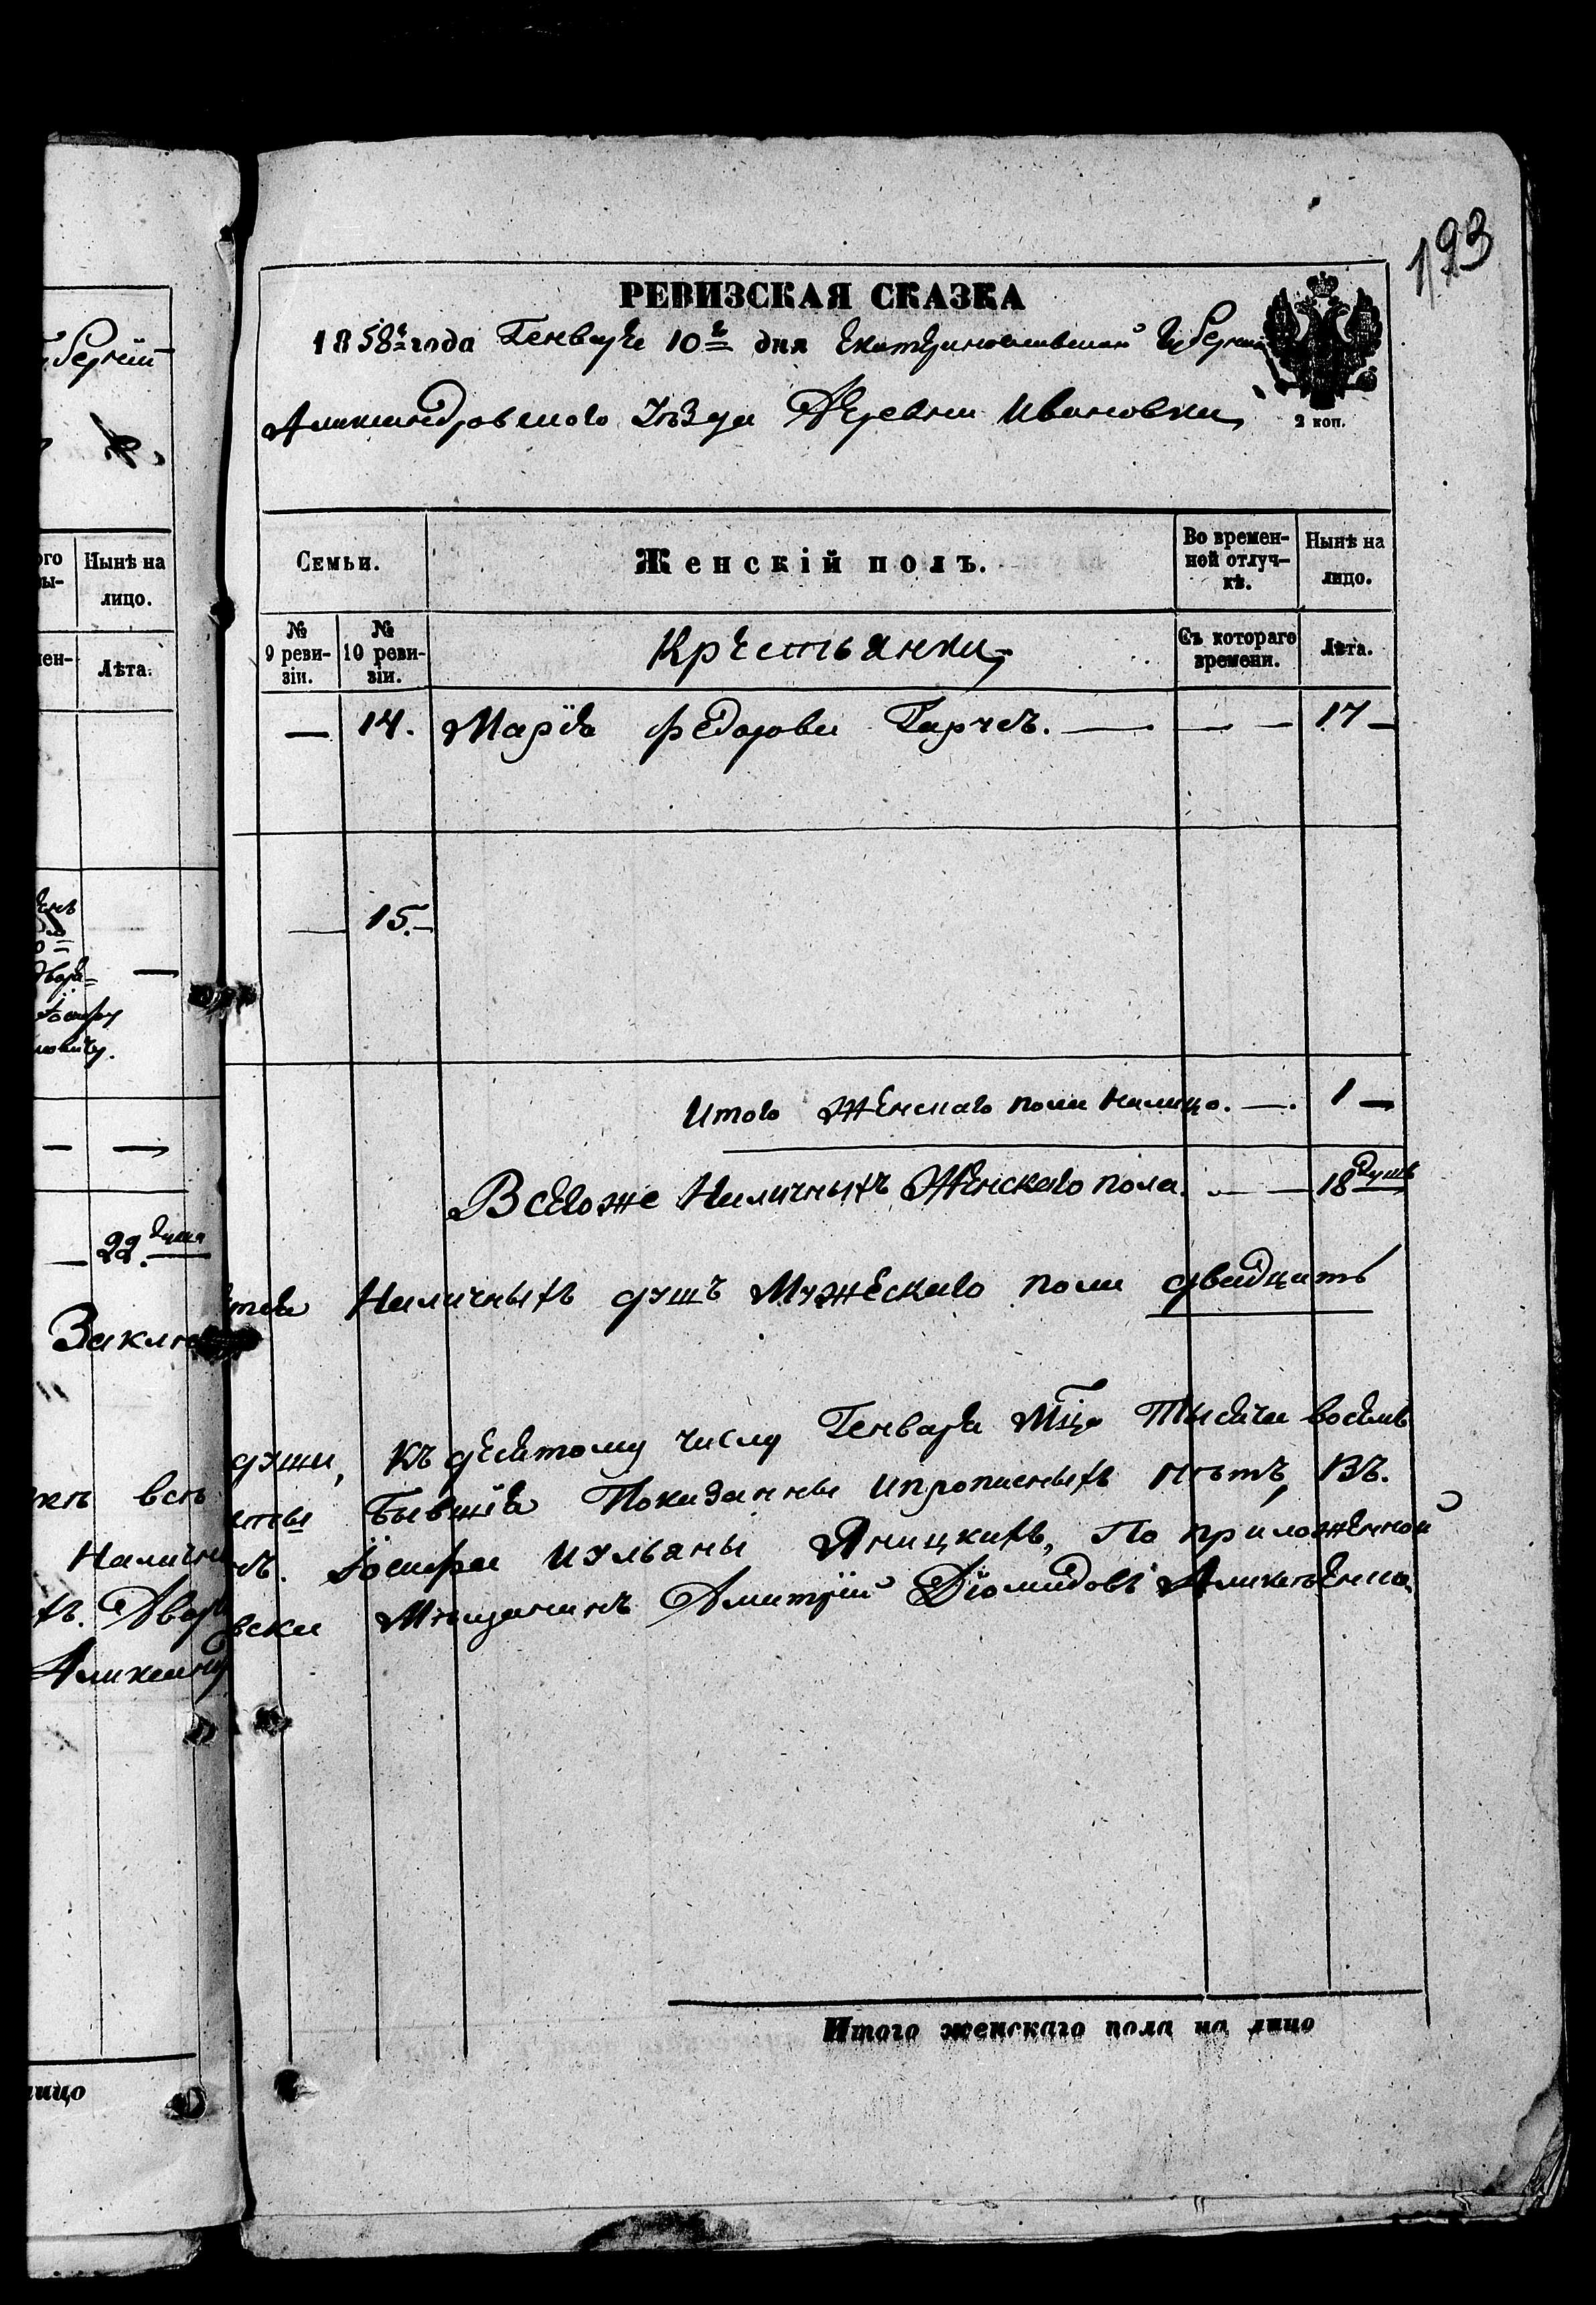 193
РЕВИЗСКАЯ СКАЗКА
1858го года Генваря 10го дня Екатеринославской Губерніи
Александровского Уѣзда Деревни Ивановки
2 коп.
Семьи.
Женскій полъ.
Во времен-
ной отлуч-
кѣ.
Нынѣ на
лицо.
№
9 реви-
зіи.
№
10 реви-
зіи.
Крестьянки
Съ котораго
времени.
Лѣта.
— 14. Марія Федорова — — 17 —
— 15. —
Итого Женскаго пола налицо. — 1 —
Всегоже Наличныхъ Женскаго пола. — — 18 душъ
Наличныхъ душъ Мужескаго пола двадцать
души, Къ десятому числу Генваря Мца Тысяча восемь
Бывшія Показанны ипрописныхъ нѣтъ, Въ.
Іосифа иульяны Яницкихъ, По приложенной
Мѣщанинъ Дмитрій Діомидовъ
Итого женскаго пола на лицо
Нынѣ на
лицо.
Лѣта.
22. душа
всѣ
лицо